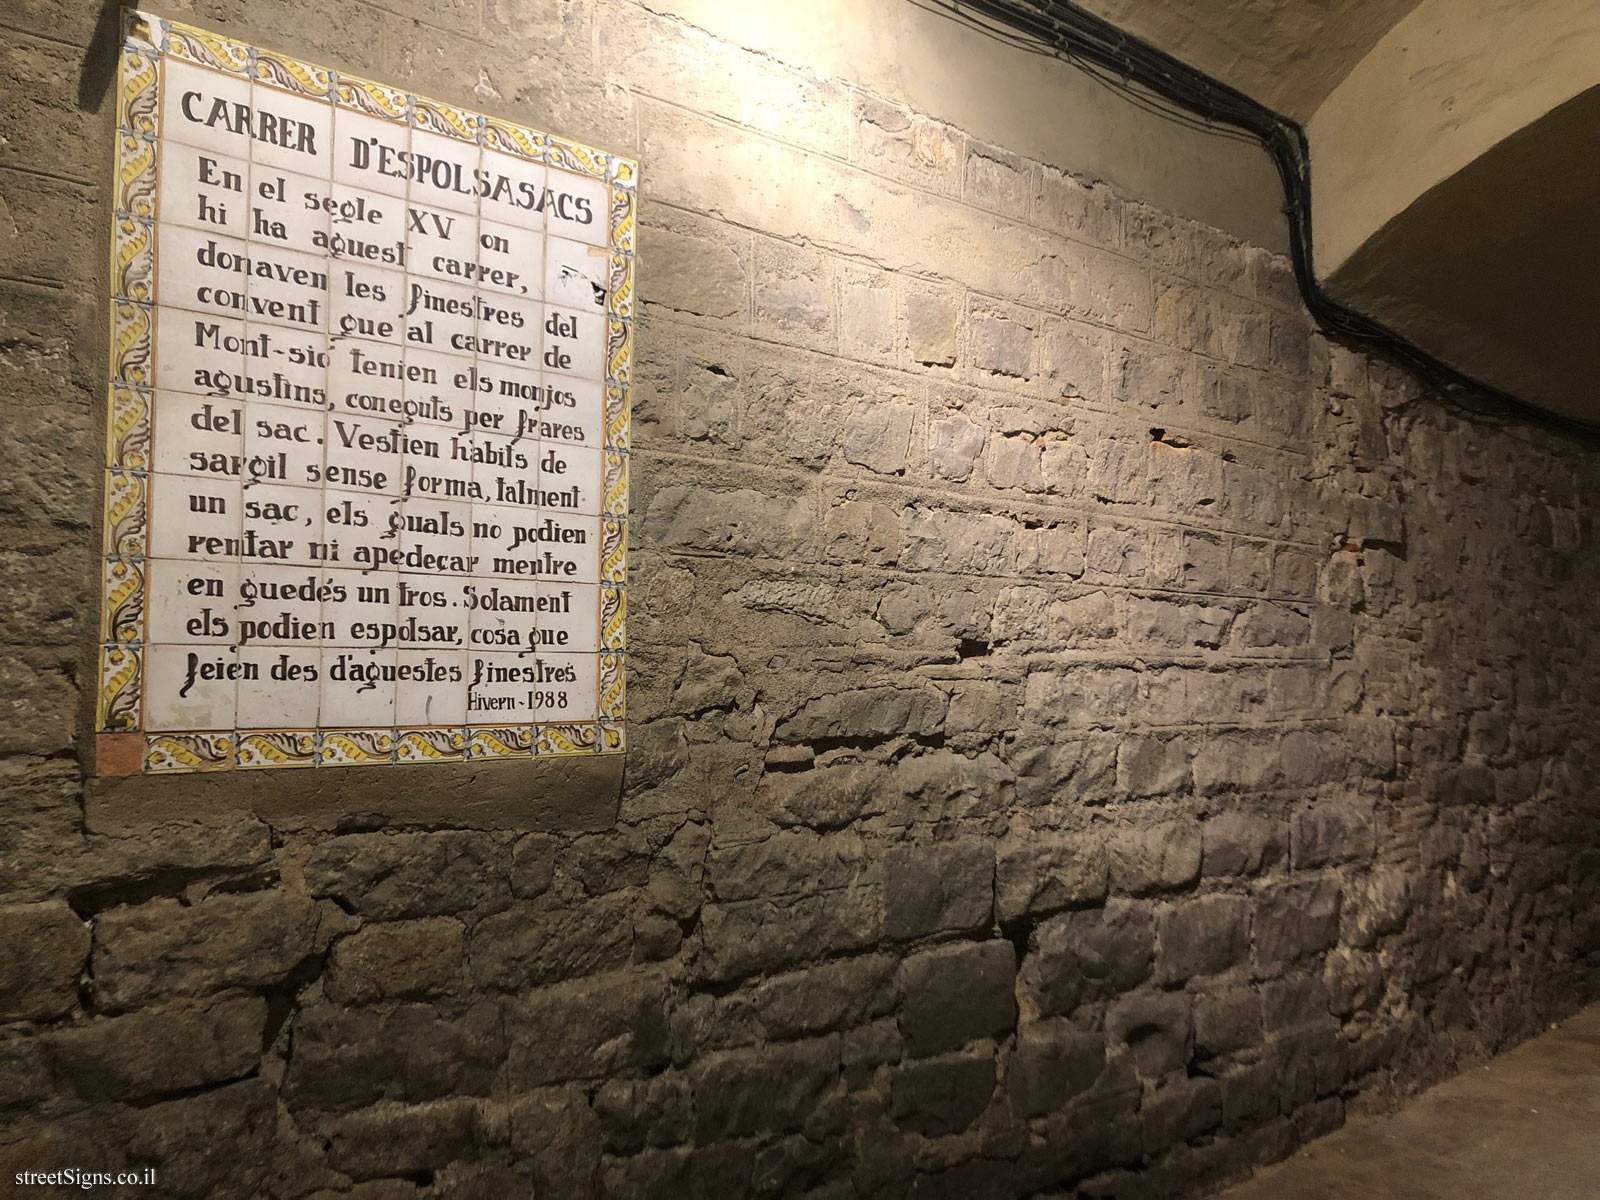 CARRER D'ESPOLSASACS
En el segle XV on
hi ha aquest carrer,
donaven les finestres del
convent que al carrer de
Mont-sió tenien els monjos
agustins, coneguts per frares
del sac. Vestien hàbits de
sargil sense forma, talment
un sac, els quals no podien
rentar ni apedeçar mentre
en quedés un tros. Solament
els podien espolsar, cosa que
feien des d'aquestes finestres
Hivern-1988
streetSigns.co.il